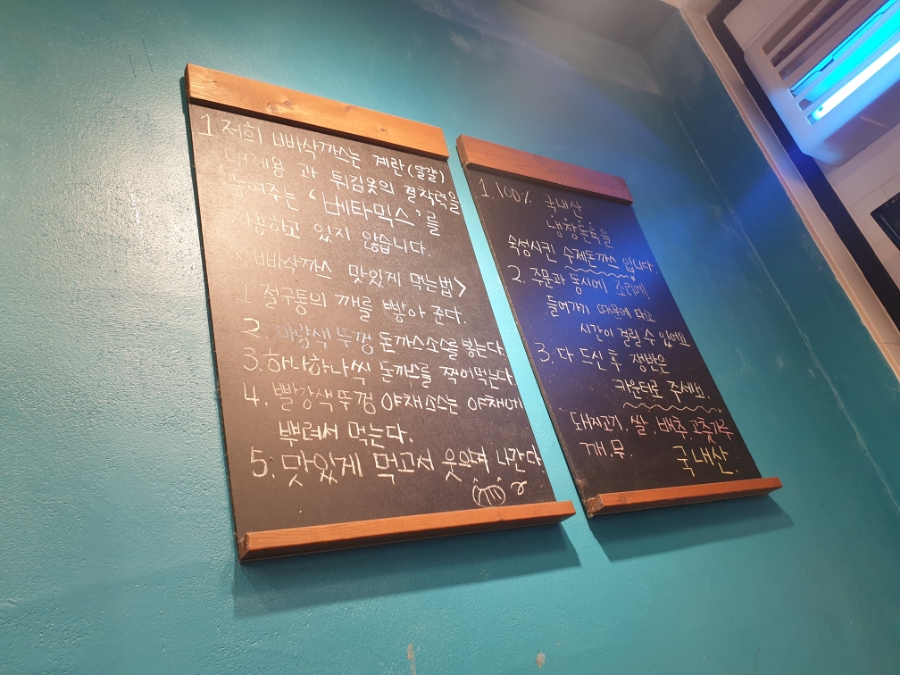 1 저희 삐삭까스는 계란(알갈)
대체용 과 튀김옷의 결착력을
높여주는 '베타믹스'를
사용하고 있지 않습니다.
삐삭까스 맛있게 먹는법>
1. 절구통의 깨를 빻아 준다.
2. 뚜껑 돈까스소스를 붓는다.
3. 하나하나씩 돈까스를 찍어먹는다.
4. 빨강색 뚜껑 야채소스는 야채에
뿌려서 먹는다.
5. 맛있게 먹고서 웃으며 나간다
1. 100% 국내산
냉장돈육을
숙성시킨 수제돈까스 입니다.
2. 주문과 동시에 조리에
들어가기 때문에 다소
시간이 걸릴 수 있어요
3. 다 드신 후 쟁반은
카운터로 주세요.
돼지고기. 쌀. 배추. 고춧가루
깨. 무. 국내산.